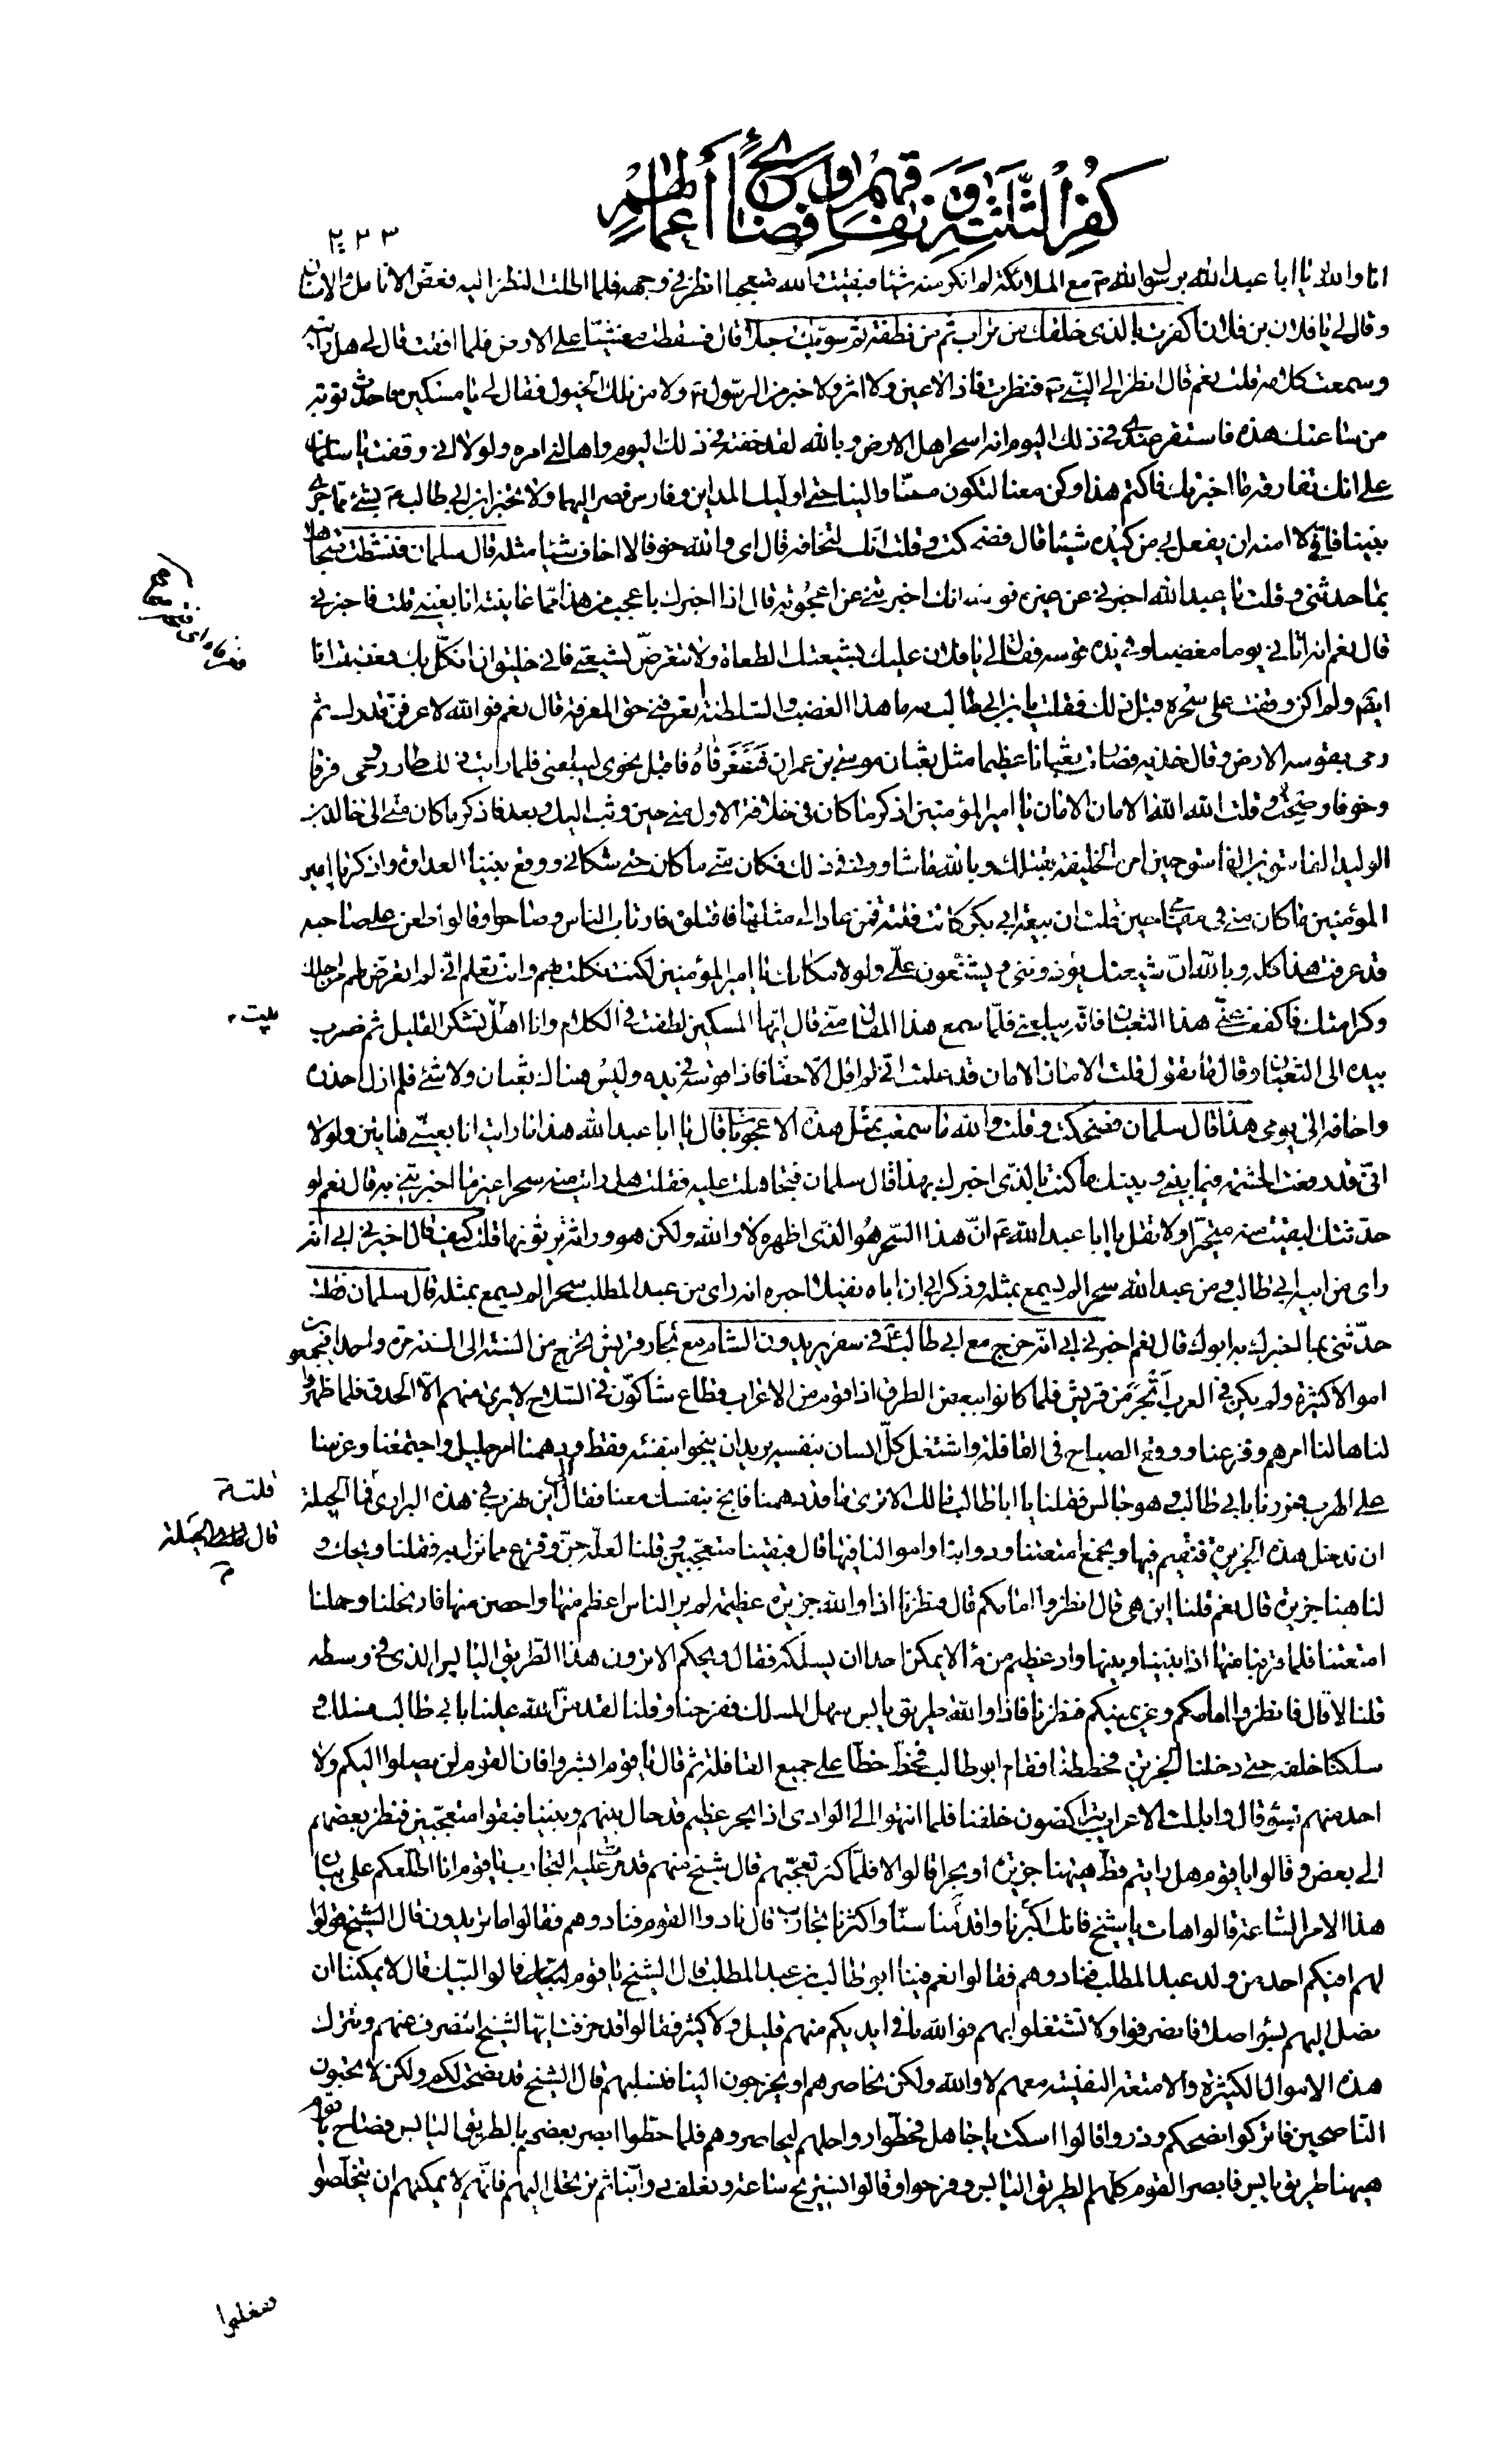 كفر الثلثة و نفاقهم و فضائح أعمالهم
٢٢٣
انا والله يا ابا عبد الله برسول الله مع الملائكة لم انكر منه شيئا فبقيت والله متعجبا انظر في وجهه فلما اطلت النظر اليه فعض الانامل والاسنان
وقال لي يا فلان بن فلان اكفرت بالذي خلقك من تراب ثم من نطفة ثم سويك رجلا قال فسقطت مغشيا على الارض فلما افقت قال لي هل رايته
وسمعت كلامه قلت نعم قال انظر الى النبي فنظرت فاذا لا عين ولا اثر ولا خبر من الرسول ولا من تلك الخيول فقال لي يا مسكين فاحدث توبة
من ساعتك هذه فاستقر عندي في ذلك اليوم انه اسحر اهل الارض وبالله لقد خفته في ذلك اليوم وهالني امره ولولا اني وقفت يا سلمان
على انك تفارقه ما اخبرتك فاكتم هذا وكن معنا لتكون منا والينا حتى اوليك المداين وفارس فصر اليهما ولا تخبر ابن ابي طالب بشئ مما جرى
بيننا فاني لا امنه ان يفعل لي من كيده شيئا قال فضحكت وقلت انك لتخافه قال اي والله خوفا لا اخاف شيئا مثله قال سلمان فنشطت متجاهلا
بما حدثني وقلت يا عبد الله اخبرني عن غيره فوالله انك اخبرتني عن اعجوبة قال اذا اخبرك باعجب من هذا مما عاينته انا بعيني قلت فاخبرني
قال نعم انه اتاني يوما مغضبا وفي يده قوسه فقال لي يا فلان عليك بشيعتك الطغاة ولا تتعرض لشيعتي فاني خليق ان انكل بك فغضبت انا
ايضا ولم اكن وقفت على سحره قبل ذلك فقلت يا ابن ابي طالب مه ما هذا الغضب والسلطنة اتعرفني حق المعرفة قال نعم فوالله لاعرفن قدرك ثم
رمى بقوسه الارض وقال خذيه فصارت ثعبانا عظيما مثل ثعبان موسى بن عمران ففغر فاه فاقبل نحوي ليبلعني فلما رايت ذلك طار روحي فرقا
وخوفا وصحت وقلت الله الله الامان الامان يا امير المؤمنين اذكر ما كان في خلافة الاول مني حين وثب اليك وبعد فاذكر ما كان مني الى خالد بن
الوليد الفاسق ابن الفاسق حين امره الخليفة بقتلك وبالله ما شاورني في ذلك فكان مني ما كان حتى شكاني ووقع بيننا العداوة واذكر يا امير
المؤمنين ما كان مني في مقامي حين قلت ان بيعة ابي بكر كانت فلتة فمن عاد الى مثلها فاقتلوه فارتاب الناس وصاحوا وقالوا طعن على صاحبه
قد عرفت هذا كله وبالله ان شيعتك يؤذونني ويشنعون علي ولولا مكانك يا امير المؤمنين لكنت نكلت بهم وانت تعلم اني لم اتعرض لهم من اجلك
وكرامتك فاكفف عني هذا الثعبان فانه يبلعني فلما سمع هذا المقال مني قال ايها المسكين لطفت في الكلام وانا اهل بيت نشكر القليل ثم ضرب
بيده الى الثعبان وقال ما تقول قلت الامان الامان قد علمت اني لم اقل الا حقا فاذا قوسه في يده وليس هناك ثعبان ولا شئ فلم ازل احذره
واخافه الى يومي هذا قال سلمان فضحكت وقلت والله ما سمعت بمثل هذه الاعجوبة قال يا ابا عبد الله هذا ما رايت انا بعيني هاتين ولولا
اني قد رفعت الحشمة فيما بيني وبينك ما كنت بالذي اخبرك بهذا قال سلمان فتجاهلت عليه فقلت هل رايت منه سحرا غير ما اخبرتني به قال نعم لو
حدثتك لبقيت منه متحيرا ولا تقل يا ابا عبد الله ان هذا السحر هو الذي اظهره لا والله ولكن هو وراثة يرثونها قلت كيف قال اخبرني ابي انه
راى من ابيه ابي طالب ومن عبد الله سحرا لم يسمع بمثله وذكر ابي ان اباه نفيلا اخبره انه راى من عبد المطلب سحرا لم يسمع بمثله قال سلمان فقلت
حدثني بما اخبرك به ابوك قال نعم اخبرني ابي انه خرج مع ابي طالب في سفر يريدون الشام مع تجار قريش تخرج من السنة الى السنة مرة واحدة فيجمعون
اموالا كثيرة ولم يكن في العرب اتجر من قريش فلما كانوا ببعض الطرق اذا قوم من الاعراب قطاع شاكون في السلاح لا يرى منهم الا الحدق فلما ظهروا
لنا هالنا امرهم وفزعنا ووقع الصياح في القافلة واشتغل كل انسان بنفسه يريد ان ينجوا بنفسه فقط ودهمنا امر جليل واجتمعنا وعزمنا
على الهرب فمررنا بابي طالب وهو جالس فقلنا يا ابا طالب ما لك الا ترى ما قد دهمنا فانج بنفسك معنا فقال الى اين نهرب في هذه البراري قلنا فما الحيلة
ان ندخل هذه الجزيرة فنقيم فيها ونجمع امتعتنا ودوابنا واموالنا فيها قال فبقينا متعجبين وقلنا لعله جن وفزع مما نزل به فقلنا ويحك و
لنا هنا جزيرة قال نعم قلنا اين هي قال انظروا امامكم قال فنظرنا اذا والله جزيرة عظيمة لم ير الناس اعظم منها ولا احصن منها فارتحلنا وحملنا
امتعتنا فلما قربنا منها اذا بيننا وبينها واد عظيم من ماء لا يمكن احدا ان يسلكه فقال ويحكم الا ترون هذا الطريق اليابس الذي في وسطه
قلنا لا قال فانظروا امامكم وعن يمينكم فنظرنا فاذا والله طريق يابس سهل المسلك ففرحنا وقلنا لقد من الله علينا بابي طالب فسلك و
سلكنا خلفه حتى دخلنا الجزيرة فحططنا فقام ابو طالب فخط خطا على جميع القافلة ثم قال يا قوم ابشروا فان القوم لن يصلوا اليكم ولا
احد منهم بسوء قال واقبلت الاعراب يتراكضون خلفنا فلما انتهوا الى الوادي اذا بحر عظيم قد حال بينهم وبيننا فبقوا متعجبين فنظر بعضهم
الى بعض وقالوا يا قوم هل رايتم قط هيهنا جزيرة او بحرا قالوا لا فلما كثر تعجبهم قال شيخ منهم قد مرت عليه التجارب يا قوم انا اطلعكم على بيان
هذا الامر الساعة قالوا هات يا شيخ فانك اكبرنا واقدمنا سنا واكثرنا تجارب قال نادوا القوم فنادوهم فقالوا ما تريدون قال الشيخ قولوا
لهم افيكم احد من ولد عبد المطلب فنادوهم فقالوا نعم فينا ابو طالب بن عبد المطلب قال الشيخ يا قوم قالوا لبيك قال لا يمكننا ان
نصل اليهم بسوء اصلا فانصرفوا ولا تشتغلوا بهم فوالله ما في ايديكم منهم قليل ولا كثير فقالوا قد خرفت ايها الشيخ اننصرف عنهم ونترك
هذه الاموال الكثيرة والامتعة النفيسة معهم لا والله ولكن نحاصرهم او يخرجون الينا فنسلبهم قال الشيخ قد نصحت لكم ولكن لا تحبون
الناصحين فاتركوا نصحكم وذروا قالوا اسكت يا جاهل فحطوا رواحلهم ليحاصروهم فلما حطوا ابصر بعضهم بالطريق اليابس فصاح يا قوم
هيهنا طريق يابس فابصر القوم كلهم الطريق اليابس وفرحوا وقالوا نستريح ساعة ونعلف دوابنا ثم نرتحل اليهم فانهم لا يمكنهم ان يتخلصوا
بيت
فلتة
قال
ففعلوا